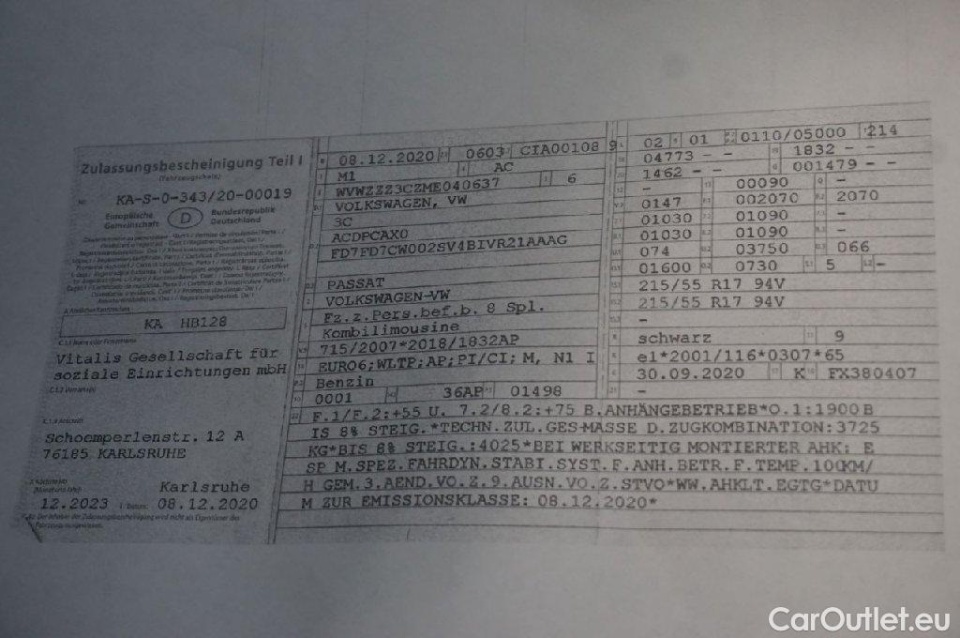 Zulassungsbescheinigung Teil I
(Fahrzeugschein)
Nr. KA-S-0-343/20-00019
Europäische Gemeinschaft D Bundesrepublik Deutschland
KA HB128
C.1.1 Name oder Firmenname
Vitalis Gesellschaft für
soziale Einrichtungen mbH
C.1.2 Vorname(n)
C.1.3 Anschrift
Schoomperlenstr. 12 A
76185 KARLSRUHE
Karlsruhe
12.2023 08.12.2020
08.12.2020 0603 CIA00108 9
M1 AC
WVWZZZ3CZME040637 6
VOLKSWAGEN, VW
3C
ACDPCAX0
FD7FD7CW002SV4BIVR21AAAG
PASSAT
VOLKSWAGEN-VW
Fz.z.Pers.bef.b. 8 Spl.
Kombilimousine
715/2007*2018/1832AP
EURO6;WLTP;AP;PI/CI; M, N1 I
Benzin
0001 36AP 01498
02 01 0110/05000 214
04773 - - 1832 - -
1462 - - 001479 - -
- 00090 -
0147 002070 2070
01030 01090 -
01030 01090 -
074 03750 066
01600 0730 5 -
215/55 R17 94V
215/55 R17 94V
-
schwarz 9
e1*2001/116*0307*65
30.09.2020 K FX380407
F.1/F.2:+55 U. 7.2/8.2:+75 B.ANHÄNGEBETRIEB*O.1:1900 B
IS 8% STEIG.*TECHN.ZUL.GES-MASSE D.ZUGKOMBINATION:3725
KG*BIS 8% STEIG.:4025*BEI WERKSEITIG MONTIERTER AHK: E
SP M.SPEZ.FAHRDYN.STABI.SYST.F.ANH.BETR.F.TEMP.100KM/
H GEM.3.AEND.VO.Z.9.AUSN.VO.Z.STVO*WW.AHKLT.EGTG*DATU
M ZUR EMISSIONSKLASSE: 08.12.2020*
CarOutlet.eu